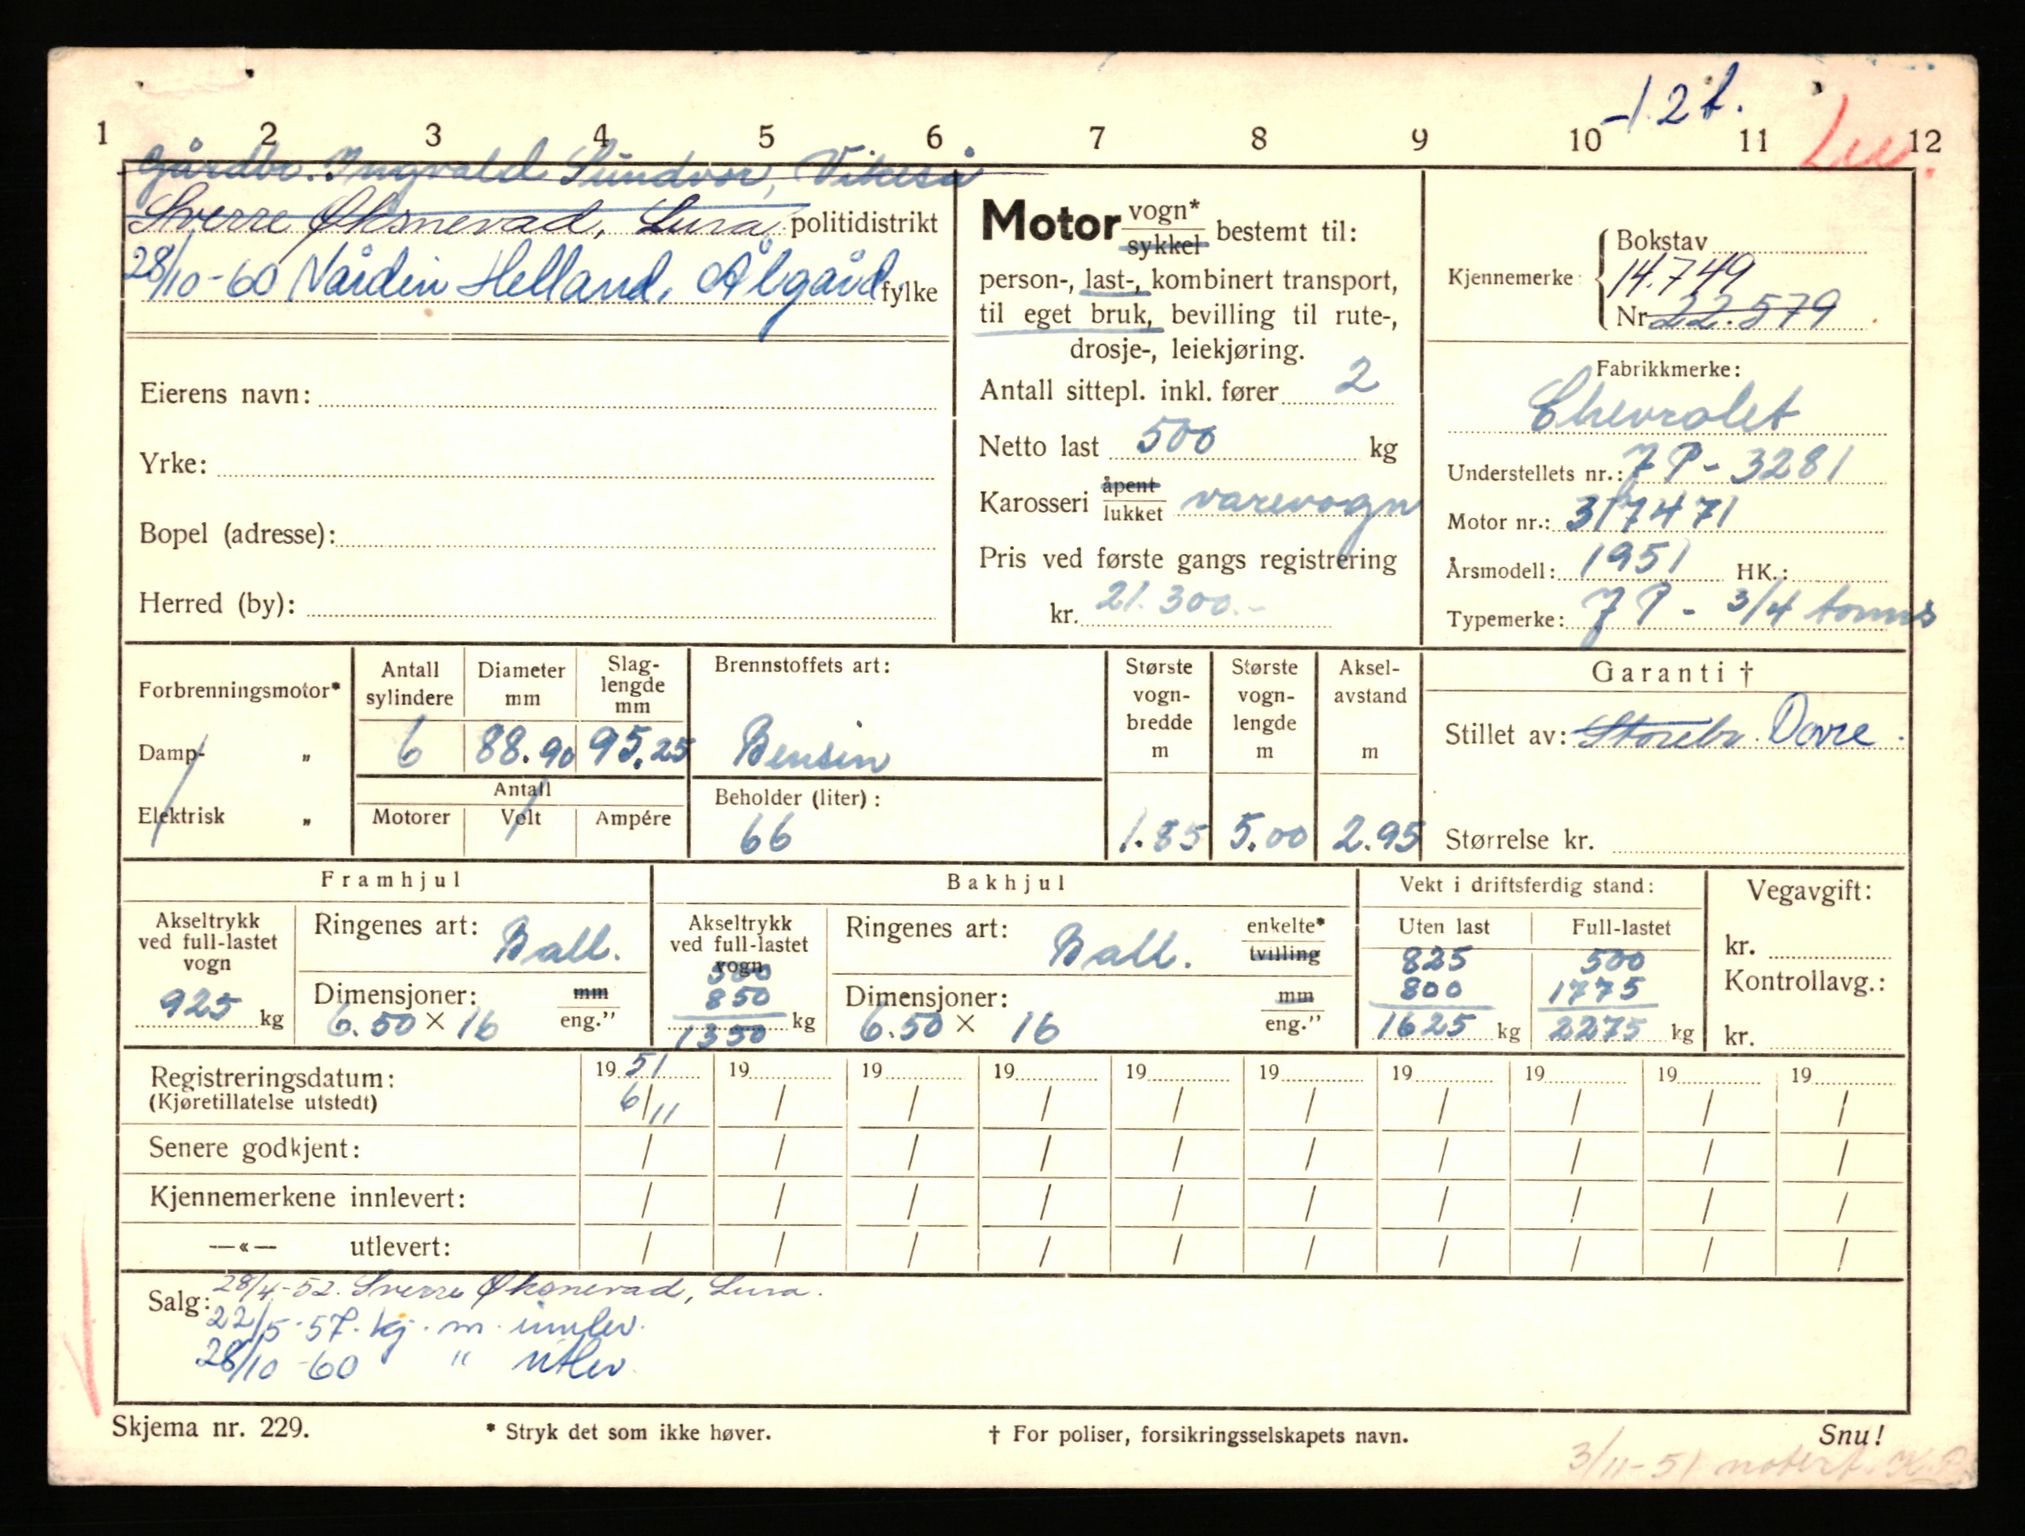 -1.2t.
1 2 3 4 5 6 7 8 9 10 11 12
Gårdbr. Ingvald Sundvor, Vikeså
Sverre Øksnevad, Lura politidistrikt
28/10-60 Nårdin Helland, Ålgård fylke
Eierens navn:
Yrke:
Bopel (adresse):
Herred (by):
Motor vogn* sykkel bestemt til:
person-, last-, kombinert transport,
til eget bruk, bevilling til rute-,
drosje-, leiekjøring.
Antall sittepl. inkl. fører 2
Netto last 500 kg
Karosseri åpent lukket varevogn
Pris ved første gangs registrering
kr. 21.300.-
Kjennemerke Bokstav
14.749
Nr 22.579
Fabrikkmerke:
Chevrolet
Understellets nr.: 7P-3281
Motor nr.: 317471
Årsmodell: 1951 HK.:
Typemerke: 7P - 3/4 tonns
Forbrenningsmotor*
Damp- „
Elektrisk „
Antall sylindere
Diameter mm
Slag-lengde mm
6 88.90 95.25
Antall
Motorer Volt Ampére
Brennstoffets art:
Bensin
Beholder (liter):
66
Største vogn-bredde m
1.85
Største vogn-lengde m
5.00
Aksel-avstand m
2.95
Garanti †
Stillet av: Storebr. Dovre.
Størrelse kr.
Framhjul
Akseltrykk ved full-lastet vogn
925 kg
Ringenes art: Ball.
Dimensjoner: mm
6.50 × 16 eng."
Bakhjul
Akseltrykk ved full-lastet vogn
500
850
1350 kg
Ringenes art: Ball. enkelte* tvilling
Dimensjoner: mm
6.50 × 16 eng."
Vekt i driftsferdig stand:
Uten last Full-lastet
825 500
800 1775
1625 kg 2275 kg
Vegavgift:
kr.
Kontrollavg.:
kr.
Registreringsdatum: 1951 19 19 19 19 19 19 19 19 19
(Kjøretillatelse utstedt) 6/11 / / / / / / / / /
Senere godkjent: / / / / / / / / / /
Kjennemerkene innlevert: / / / / / / / / / /
—«— utlevert: / / / / / / / / / /
Salg: 28/4-52. Sverre Øksnevad, Lura.
22/5-57. kj. m. innlev.
28/10-60 " utlev.
Skjema nr. 229. * Stryk det som ikke høver. † For poliser, forsikringsselskapets navn. Snu!
3/11-51 notert.